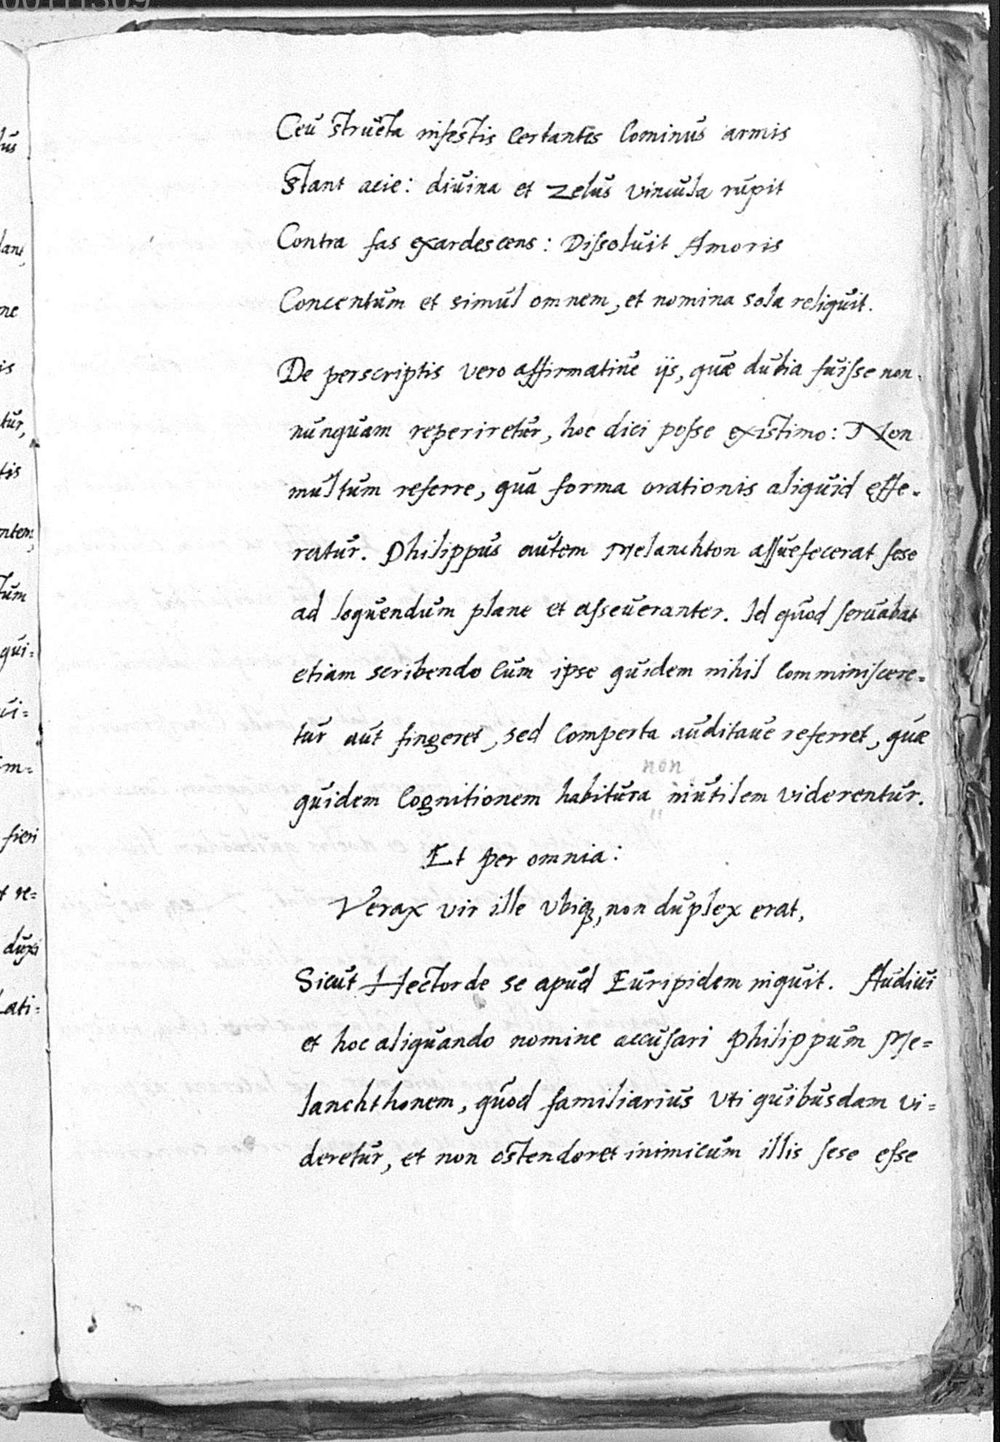 Ceu structa infestis certantes cominus armis
Stant acie: diuina et zelus vincula rupit
Contra fas exardescens: Dissoluit Amoris
Concentum et simul omnem, et nomina sola reliquit.
De perscriptis vero affirmatiue ijs, quæ dubia fuisse non-
nunquam reperiretur, hoc dici posse existimo: Non
multum referre, qua forma orationis aliquid effe-
ratur. Philippus autem Melanchton assuefecerat sese
ad loquendum plane et asseueranter. Id quod seruabat
etiam scribendo cum ipse quidem nihil comminiscere-
tur aut fingeret, sed comperta auditaue referret, quæ
non
quidem cognitionem habitura inutilem viderentur.
Et per omnia:
Verax vir ille vbiq, non duplex erat,
Sicut Hector de se apud Euripidem inquit. Audiui
et hoc aliquando nomine accusari Philippum Me=
lanchthonem, quod familiarius vti quibusdam vi=
deretur, et non ostenderet inimicum illis sese esse
lus
ne
is
tur,
tis
ntem,
tum
qui=
ui=
im=
fieri
t re=
duxi
Lati=